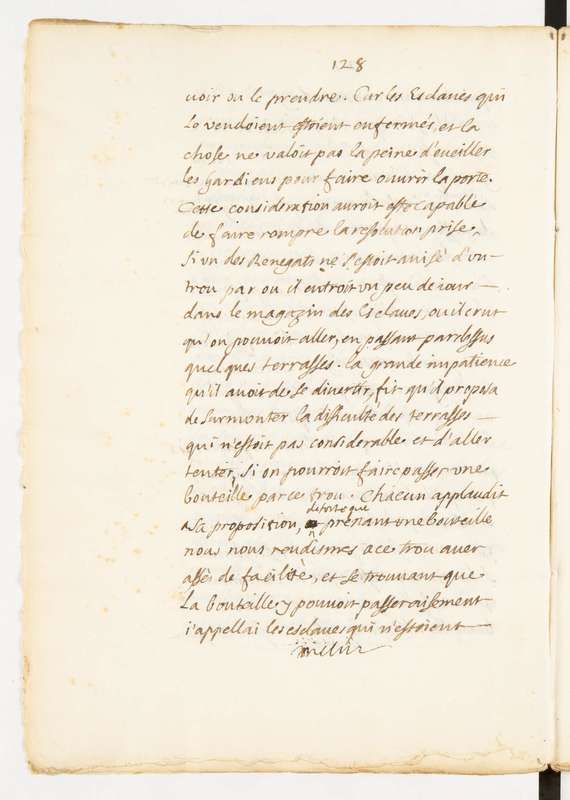 128
uoir ou le prendre. Car les Esclaves qui
le vendoient estoient enfermés, et la
chose ne valoit pas la peine d'eueiller
les Gardiens pour faire ouurir la porte.
Cette consideration auroit esté capable
de faire rompre la resolution prise,
si vn des Renegats ne s'estoit auisé d'vn
trou par ou il entroit vn peu de iour
dans le magazin des Esclaves, ou il crut
qu'on pouuoit aller, en passant pardessus
quelques terrasses. la grande impatience
qu'il auoit de se divertir, fit qu'il proposa
de surmonter la difficulté des terrasses
qui n'estoit pas considerable et d'aller
tenter, si on pourroit faire passer vne
bouteille par ce trou. Chacun applaudit
de sorte que
a sa proposition, prenant vne bouteille
nous nous rendismes a ce trou auec
assés de facilité, et se trouuant que
la bouteille y pouuoit passer aisement
i'appellai les esclaves qui n'estoient